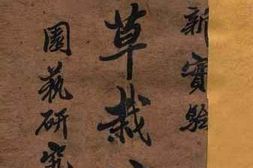 新實驗
草栽
園藝研究